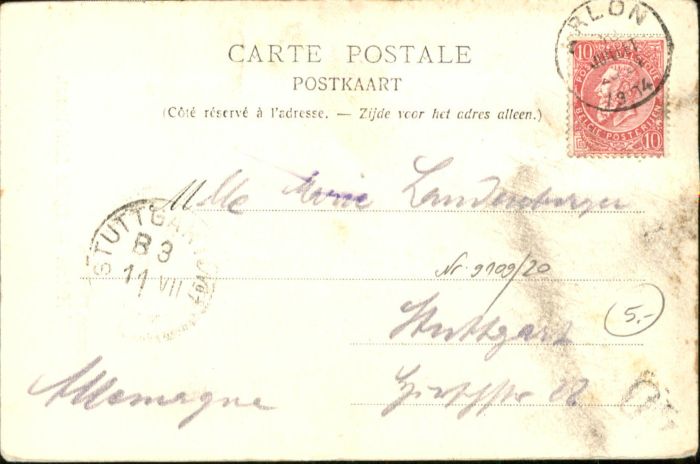 CARTE POSTALE
POSTKAART
(Côté réservé à l'adresse. — Zijde voor het adres alleen.)
ARLON
10 10
BELGIE POSTERIJEN
10
Mlle Marie Landenberger
STUTTGART
B3
11 VII
Nr. 9109/20
5.-
Stuttgart
Allemagne
Hirschstr 22